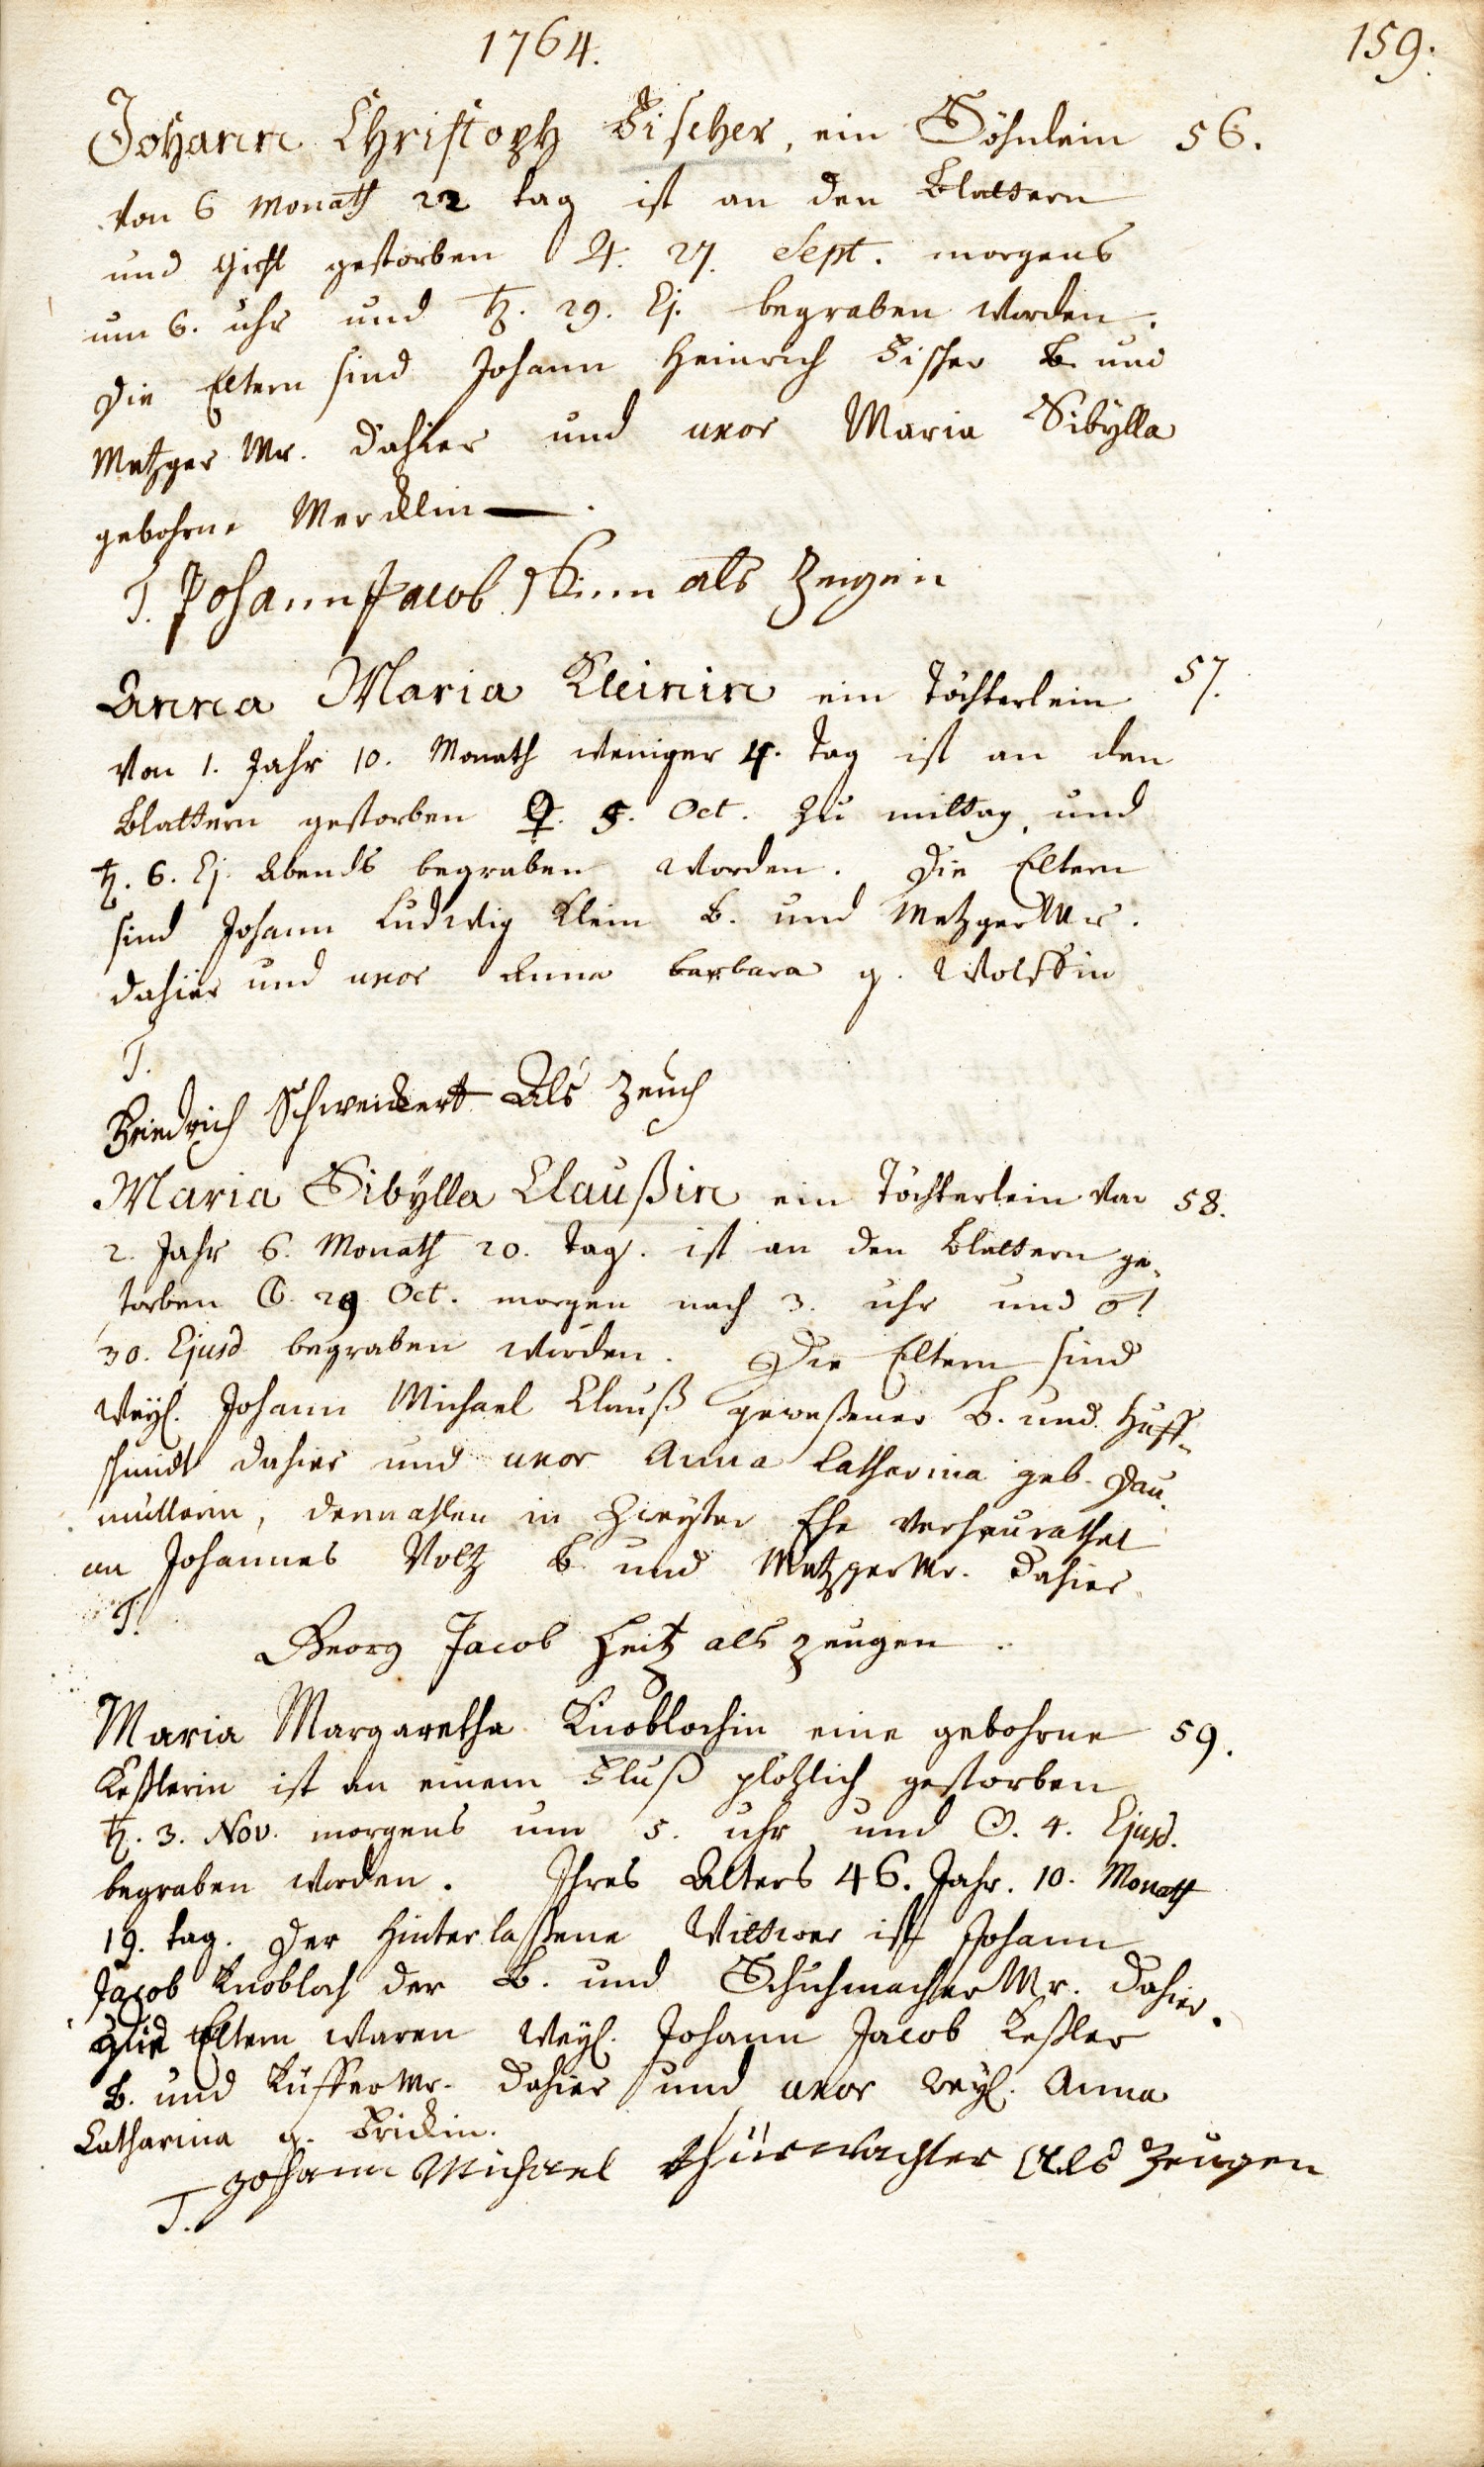 1764.
159.
Johann Christoph Fischer, ein Söhnlein 56.
von 6 Monath 22 tag ist an den Blattern
und Gicht gestorben ♃. 27. Sept. morgens
um 6. uhr und ♄. 29. Ej. begraben worden.
Die Eltern sind Johann Heinrich Fischer B. und
Metzger Mr. dahier und uxor Maria Sibÿlla
gebohrne Mercklin.
T. Johann Jacob als Zeugen
Anna Maria Kleinin ein Töchterlein 57.
von 1. Jahr 10. Monath weniger 4. Tag ist an den
Blattern gestorben ♀. 5. Oct. zu mittag, und
♄. 6. Ej. Abends begraben worden. Die Eltern
sind Johann Ludwig Klein B. und Metzger Mr.
dahier und uxor Anna Barbara g. Wolffin
T.
Friedrich Schweickert Als Zeuch
Maria Sibÿlla Claußin ein Töchterlein von 58.
2. Jahr 6. Monath 20. Tag. ist an den Blattern ge-
storben ☾. 29 Oct. morgen nach 3. uhr und ♂.
30. Ejusd begraben worden. Die Eltern sind
Weyl. Johann Michael Clauß gewesener B. und Huff-
schmidt dahier und uxor Anna Catharina geb. Dau-
müllerin, dermahlen in Zweyter Ehe verheurathet
an Johannes Voltz B. und Metzger Mr. dahier.
T.
Georg Jacob Heitz als zeugen.
Maria Margaretha Knoblochin eine gebohrne 59.
Keßlerin ist an einem Fluß plötzlich gestorben
♄. 3. Nov. morgens um 5. uhr und ☉. 4. Ejusd.
begraben worden. Ihres Alters 46. Jahr. 10. Monath
19. tag. Der Hinterlaßene Wittwer ist Johann
Jacob Knobloch der B. und Schuhmacher Mr. dahier.
Die Eltern waren Weyl. Johann Jacob Keßler
B. und Küffer Mr. dahier und uxor weyl. Anna
Catharina g. Frickin.
Johann Michael thürwächter Als Zeugen
T.